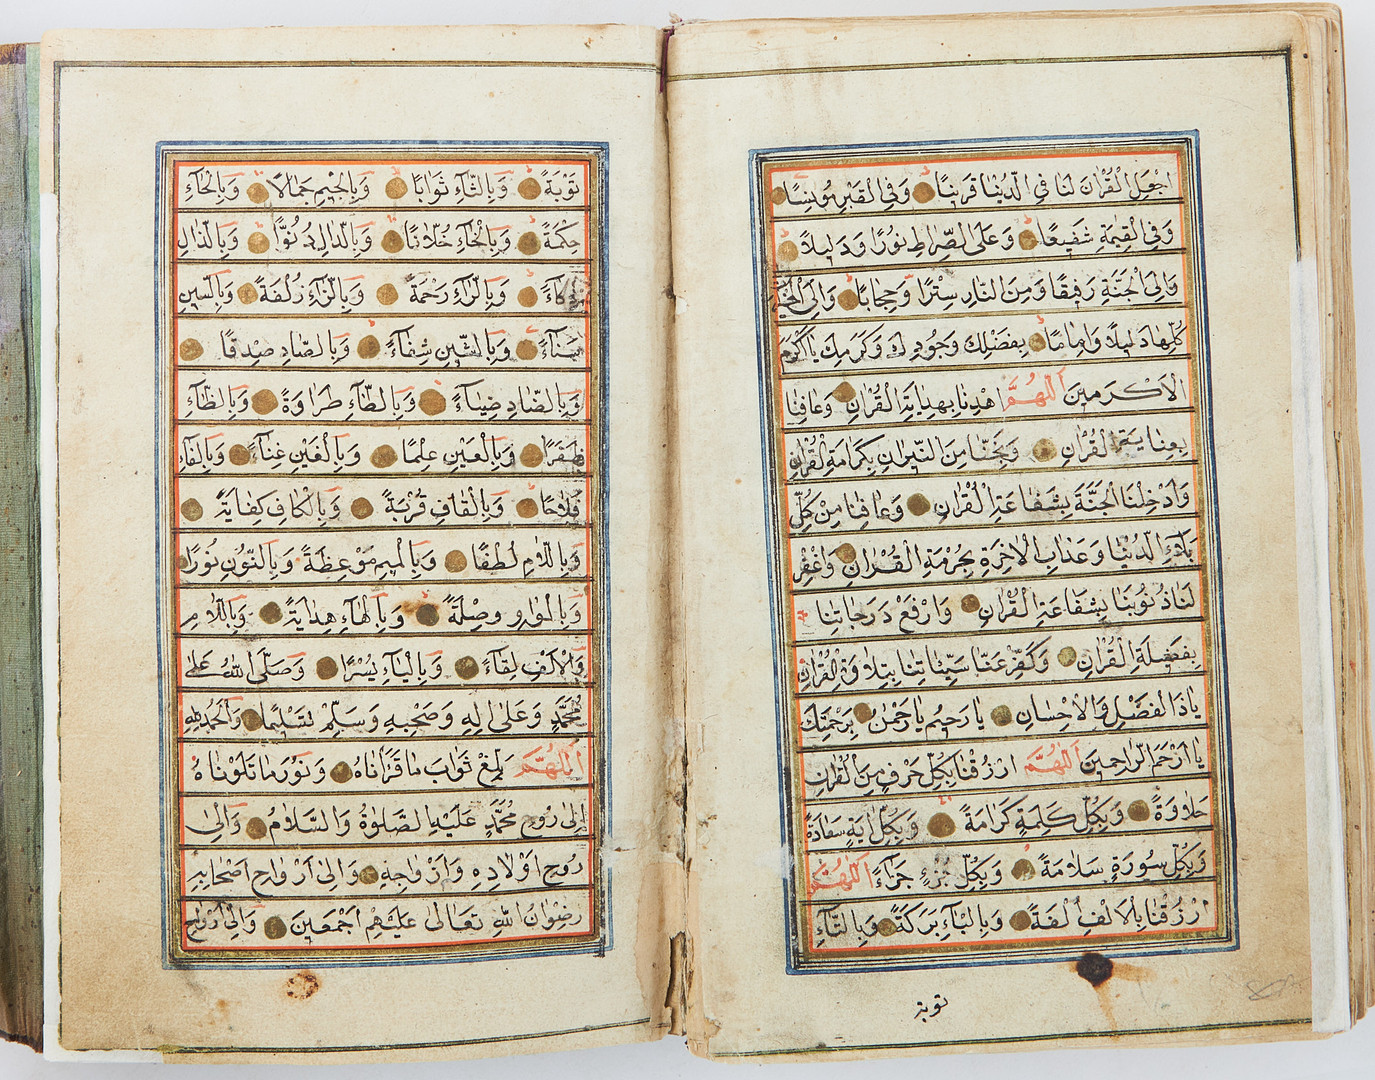 اجْعَلِ الْقُرْاٰنَ لَنَا فِي الدُّنْيَا قَرِينًا وَفِي الْقَبْرِ مُونِسًا
وَفِي الْقِيٰمَةِ شَفِيعًا وَعَلَى الصِّرَاطِ نُورًا وَدَلِيلًا
وَاِلَى الْجَنَّةِ رَفِيقًا وَمِنَ النَّارِ سِتْرًا وَحِجَابًا وَاِلَى
كُلِّهَا دَلِيلًا وَاِمَامًا بِفَضْلِكَ وَجُودِكَ وَكَرَمِكَ يَا اَكْرَمَ
الْاَكْرَمِينَ اَللّٰهُمَّ اهْدِنَا بِهِدَايَةِ الْقُرْاٰنِ وَعَافِنَا
بِعِنَايَةِ الْقُرْاٰنِ وَنَجِّنَا مِنَ النِّيرَانِ بِكَرَامَةِ الْقُرْاٰنِ
وَاَدْخِلْنَا الْجَنَّةَ بِشَفَاعَةِ الْقُرْاٰنِ وَعَافِنَا مِنْ كُلِّ
بَلَاءِ الدُّنْيَا وَعَذَابِ الْاٰخِرَةِ بِحُرْمَةِ الْقُرْاٰنِ وَاغْفِرْ
لَنَا ذُنُوبَنَا بِشَفَاعَةِ الْقُرْاٰنِ وَارْفَعْ دَرَجَاتِنَا
بِفَضِيلَةِ الْقُرْاٰنِ وَكَفِّرْ عَنَّا سَيِّئَاتِنَا بِتِلَاوَةِ الْقُرْاٰنِ
يَا ذَا الْفَضْلِ وَالْاِحْسَانِ يَا رَحِيمُ يَا رَحْمٰنُ بِرَحْمَتِكَ
يَا اَرْحَمَ الرَّاحِمِينَ اَللّٰهُمَّ ارْزُقْنَا بِكُلِّ حَرْفٍ مِنَ الْقُرْاٰنِ
حَلَاوَةً وَبِكُلِّ كَلِمَةٍ كَرَامَةً وَبِكُلِّ اٰيَةٍ سَعَادَةً
وَبِكُلِّ سُورَةٍ سَلَامَةً وَبِكُلِّ جُزْءٍ جَزَاءً اَللّٰهُمَّ
ارْزُقْنَا بِالْاَلِفِ اُلْفَةً وَبِالْبَاءِ بَرَكَةً وَبِالتَّاءِ
توبة
تَوْبَةً وَبِالثَّاءِ ثَوَابًا وَبِالْجِيمِ جَمَالًا وَبِالْحَاءِ
حِكْمَةً وَبِالْخَاءِ خُلَّانًا وَبِالدَّالِ دُنُوًّا وَبِالذَّالِ
وَبِالرَّاءِ رَحْمَةً وَبِالزَّاءِ زُلْفَةً وَبِالسِّينِ
سَنَاءً وَبِالشِّينِ شِفَاءً وَبِالصَّادِ صِدْقًا
وَبِالضَّادِ ضِيَاءً وَبِالطَّاءِ طَرَاوَةً وَبِالظَّاءِ
ظَفَرًا وَبِالْعَيْنِ عِلْمًا وَبِالْغَيْنِ غِنَاءً وَبِالْفَاءِ
فَلَاحًا وَبِالْقَافِ قُرْبَةً وَبِالْكَافِ كِفَايَةً
وَبِاللَّامِ لُطْفًا وَبِالْمِيمِ مَوْعِظَةً وَبِالنُّونِ نُورًا
وَبِالْوَاوِ وُصْلَةً وَبِالْهَاءِ هِدَايَةً وَبِاللَّامِ
وَالْاَلِفِ لِقَاءً وَبِالْيَاءِ يُسْرًا وَصَلَّى اللّٰهُ عَلٰى
مُحَمَّدٍ وَعَلٰى اٰلِهِ وَصَحْبِهِ وَسَلِّمْ تَسْلِيمًا وَالْحَمْدُ لِلّٰهِ
اَللّٰهُمَّ بَلِّغْ ثَوَابَ مَا قَرَأْنَاهُ وَنُورَ مَا تَلَوْنَاهُ
اِلٰى رُوحِ مُحَمَّدٍ عَلَيْهِ الصَّلٰوةُ وَالسَّلَامُ وَاِلٰى
رُوحِ اَوْلَادِهِ وَاَزْوَاجِهِ وَاِلٰى اَرْوَاحِ اَصْحَابِهِ
رِضْوَانُ اللّٰهِ تَعَالٰى عَلَيْهِمْ اَجْمَعِينَ وَاِلٰى اَرْوَاحِ